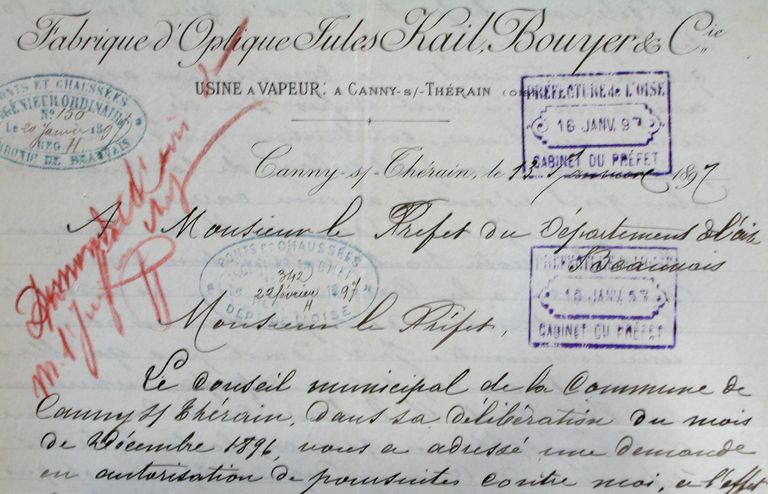 Fabrique d'Optique Jules Kail, Bouyer & Cie
USINE A VAPEUR: A CANNY-S/-THÉRAIN
PONTS ET CHAUSSÉES
INGÉNIEUR ORDINAIRE
No 150
Le 20 Janvier 1897
REG. H
DE BEAUVAIS
PRÉFECTURE de L'OISE
16 JANV. 97
CABINET DU PRÉFET
Canny-s/-Thérain, le 15 Janvier 1897
A Monsieur le Préfet du Département de l'Oise
Beauvais
PONTS ET CHAUSSÉES
342
22 février 1897
H
DEPT DE L'OISE
16 JANV. 97
CABINET DU PRÉFET
Monsieur le Préfet,
Le Conseil municipal de la Commune de
Canny s/ Thérain, dans sa délibération du mois
de Décembre 1896, vous a adressé une demande
en autorisation de poursuites contre moi, à l'effet